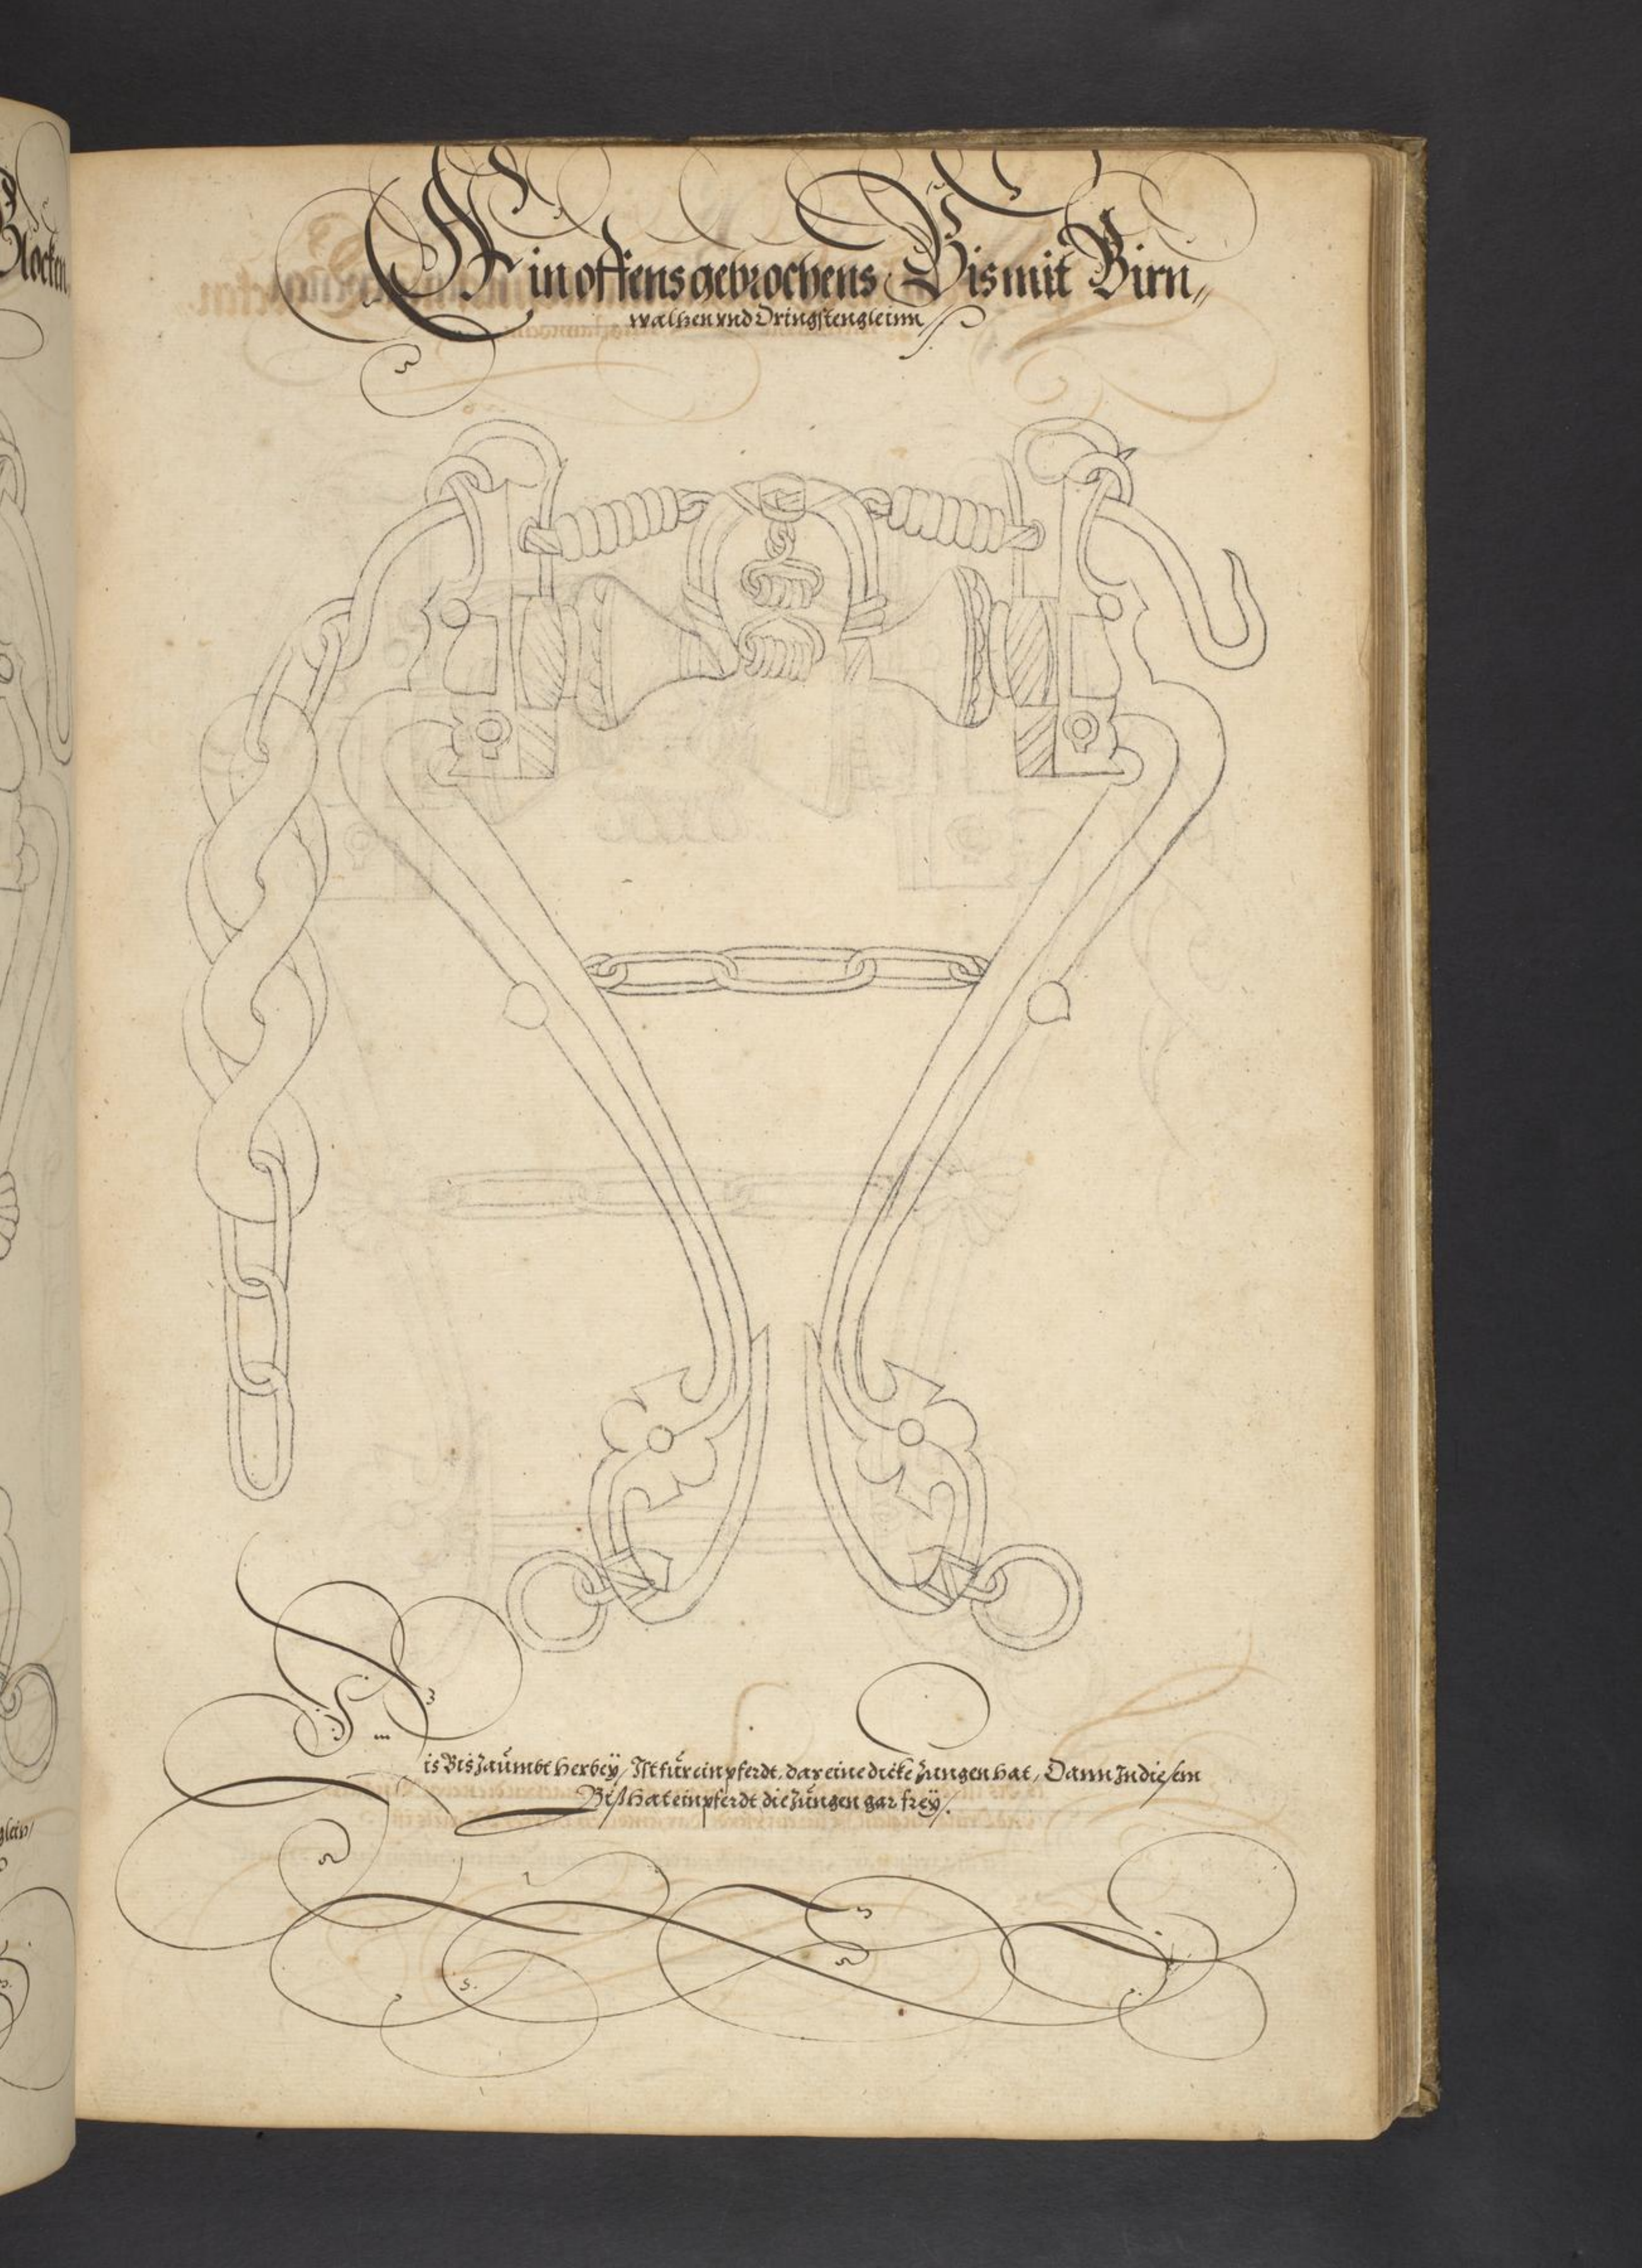 Ein offens gebrochens Bis mit Birn„
walhen vnd Dringstengleinn
Dis Bis Zäumbt herbeÿ / Ist für ein pferdt, dar eine dicke Zungen hat, Dann In diesem
Biß hat ein pferdt die Zungen gar freÿ.
Glocken
glein /